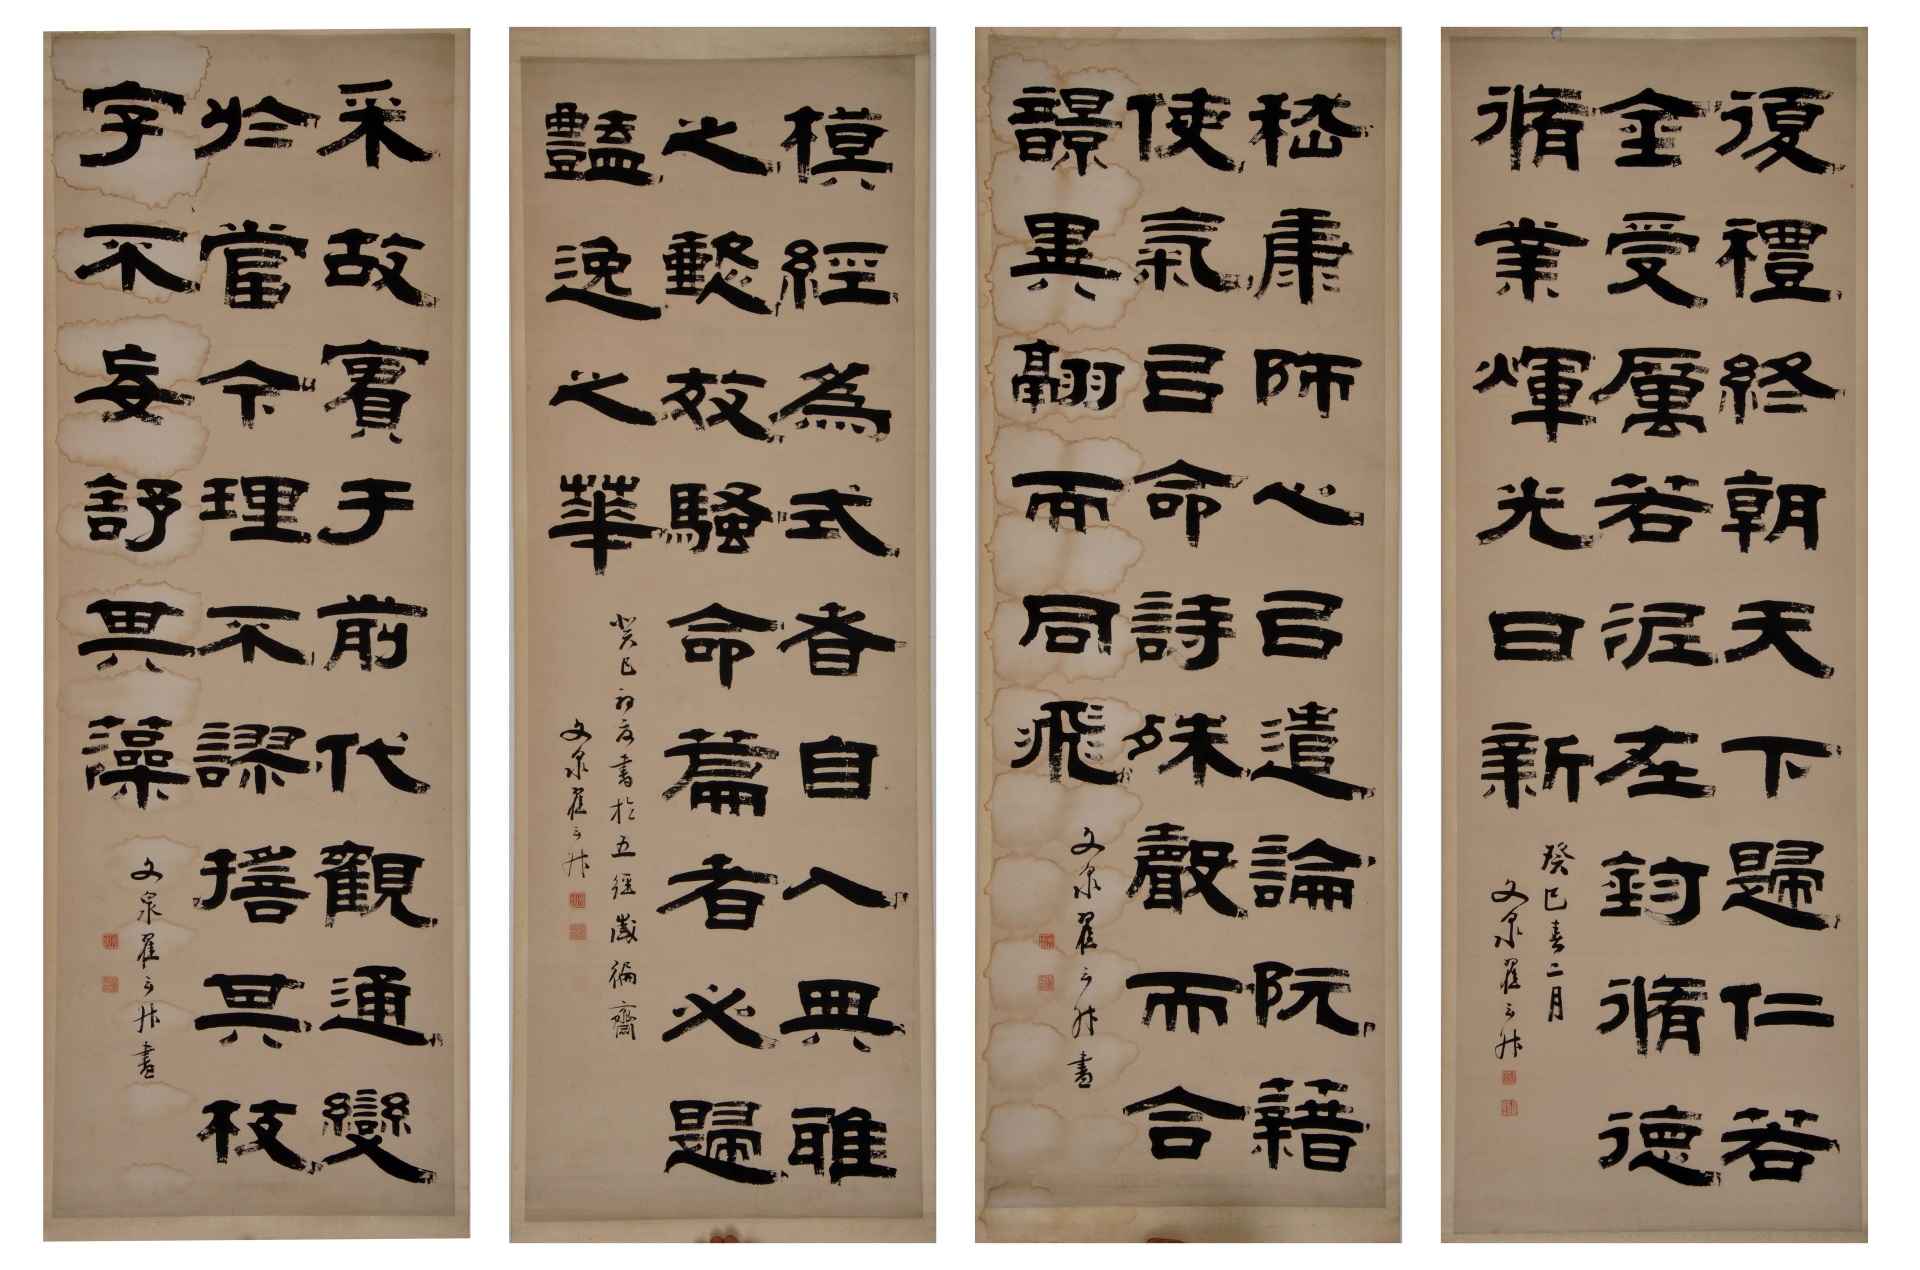 復禮終朝天下歸仁若
金受厲若泥在鈞脩德
脩業輝光日新
癸巳春二月
文泉翟云升
嵇康師心㠯遣論阮籍
使氣㠯命詩殊聲而合
響異翮而同飛
文泉翟云升書
模經為式者自入典雅
之懿效騷命篇者必歸
豔逸之華
癸巳初夏書於五經歲徧齋
文泉翟云升
采故實于前代觀通變
於當今理不謬搖其枝
字不妄舒其藻
文泉翟云升書